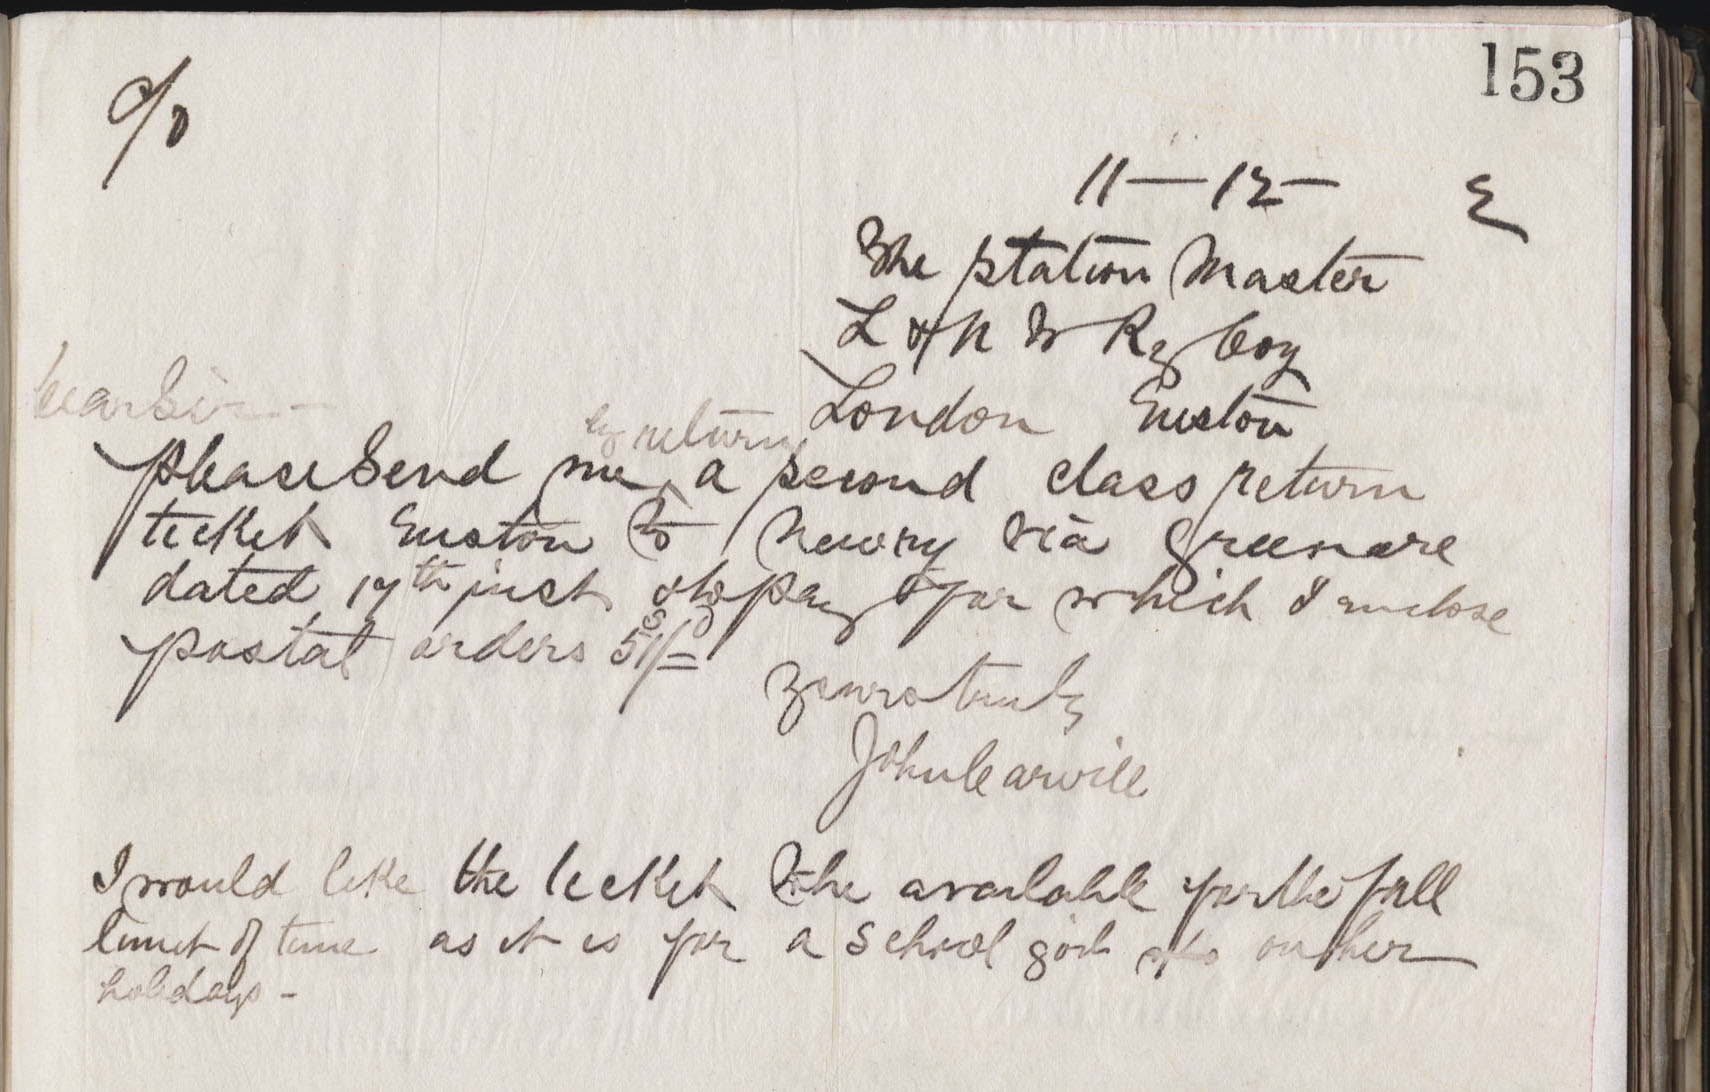 153
11 — 12 —
The Station Master
L & N W Ry Coy
London Euston
Dear Sir —
by return
please send me ^ a second class return
ticket Euston to Newry via Greenore
dated 17th inst & to pay for which I enclose
postal orders 51/-
yours truly
John Carvill
I would like the ticket to be available for the full
limit of time as it is for a school girl on her
holidays -